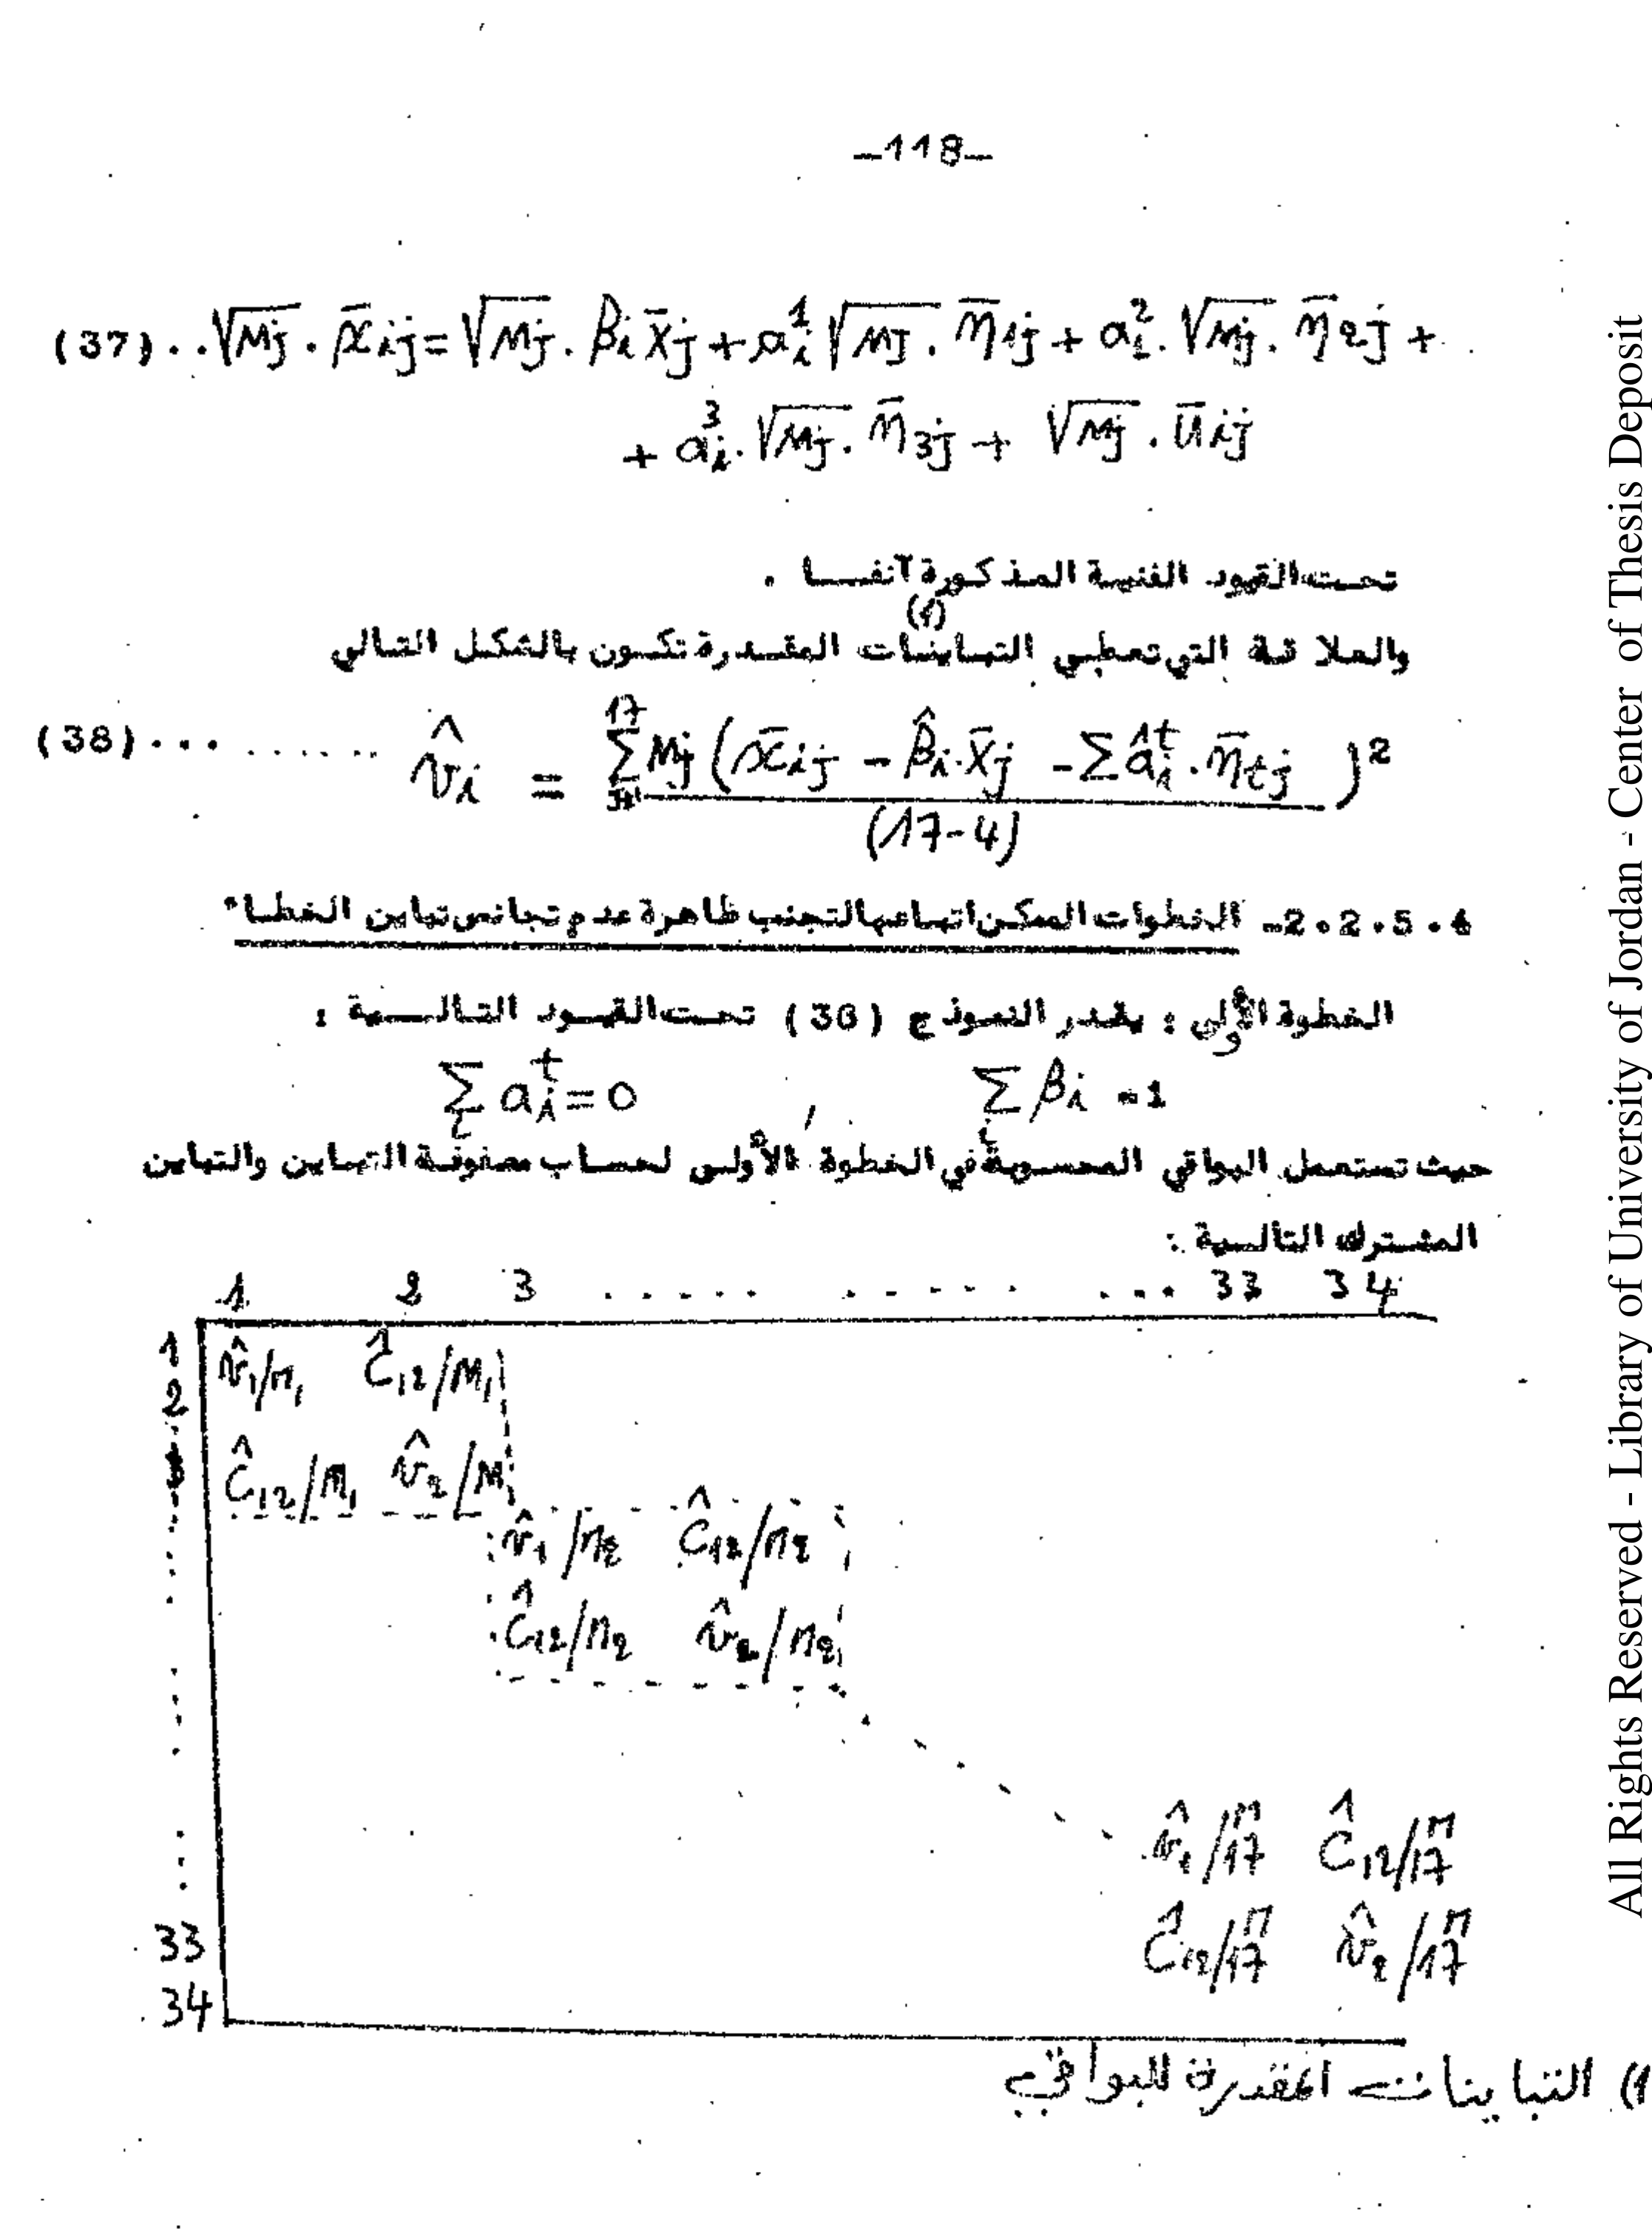 -118-
(37)..√Mj . x̄ij = √Mj . βi x̄j + a¹i √Mj . η̄1j + a²i . √Mj . η̄2j +
+ a³i . √Mj . η̄3j + √Mj . ūij
تحت القيود الفنية المذكورة آنفا .
والعلاقة التي تعطي التباينات (1) المقدرة تكون بالشكل التالي
(38)... ...... v̂i = Σ¹⁷ j=1 Mj (x̄ij - β̂i . x̄j - Σ âᵗi . η̄tj )² / (17-4)
2.2.5.4- الخطوات الممكن اتباعها لتجنب ظاهرة عدم تجانس تباين الخطأ
الخطوة الأولى : يقدر النموذج (36) تحت القيود التالية :
Σi aᵗi = 0 , Σi βi = 1
حيث تستعمل البواقي المحسوبة في الخطوة الأولى لحساب مصفوفة التباين والتباين
المشترك التالية :
1 2 3 ..... ..... ... 33 34
1 v̂1/n1 ĉ12/n1
2
3 ĉ12/n1 v̂2/n1
v̂1/n2 ĉ12/n2
ĉ12/n2 v̂2/n2
v̂1/n17 ĉ12/n17
33 ĉ12/n17 v̂2/n17
34
1) التباينات المقدرة للبواقي
All Rights Reserved - Library of University of Jordan - Center of Thesis Deposit